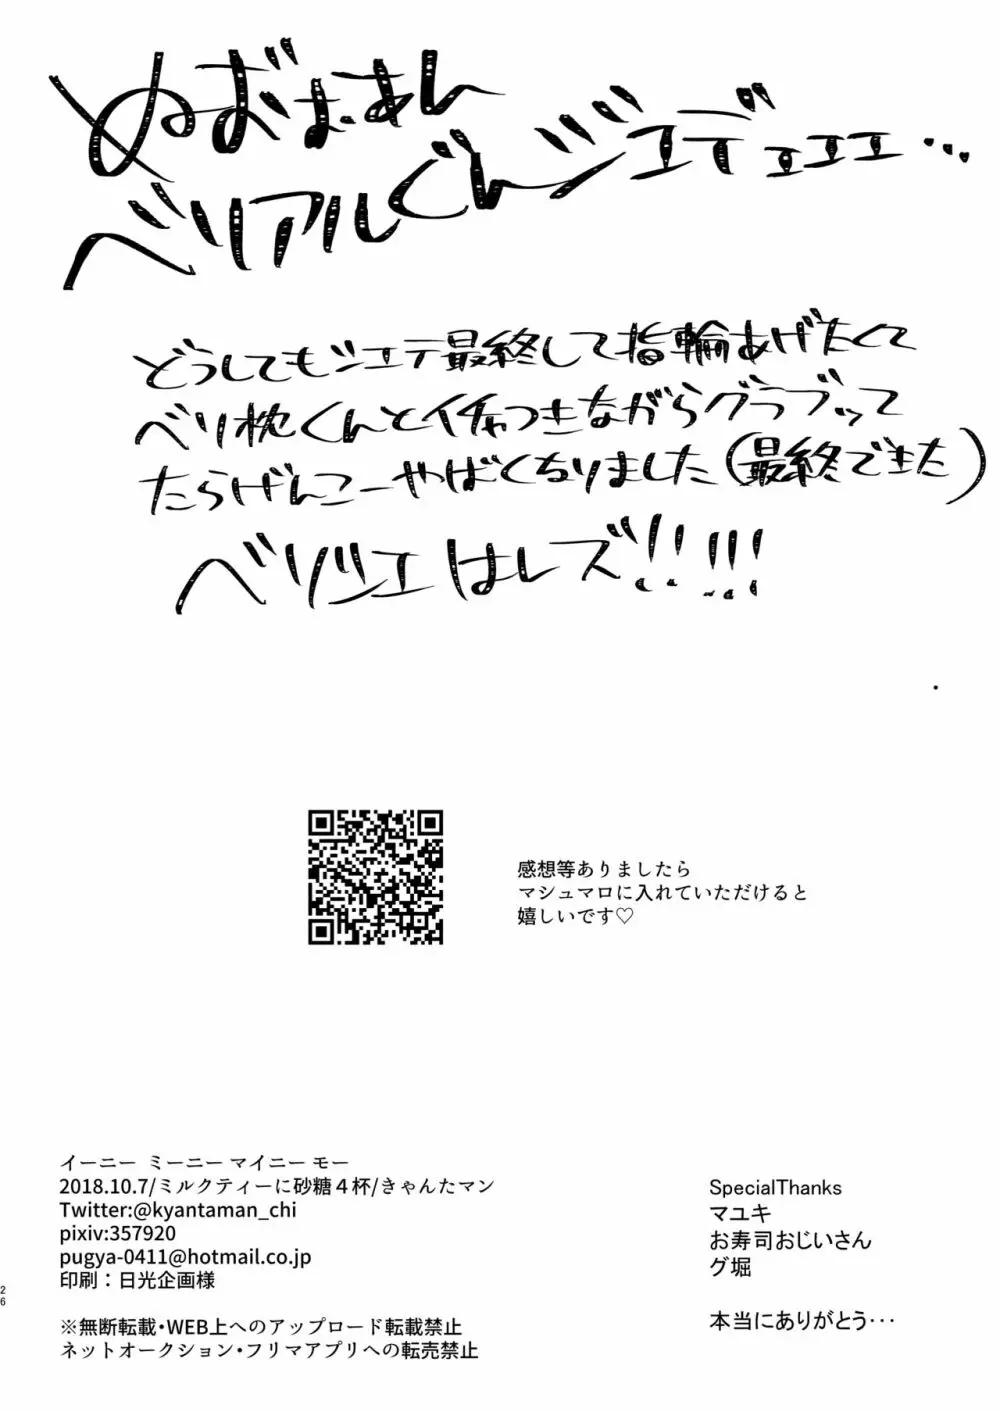 ぬおまあん
ベリアルぐんジエデェェェ…
どうしてもジエテ最終して指輪あげたくて
ベリ枕くんとイチャつきながらグラブッて
たらげんこーやばくなりました(最終できた)
ベリジエはレズ!!!!!
感想等ありましたら
マシュマロに入れていただけると
嬉しいです♡
イーニー ミーニー マイニー モー
2018.10.7/ミルクティーに砂糖４杯/きゃんたマン
Twitter:@kyantaman_chi
pixiv:357920
pugya-0411@hotmail.co.jp
印刷：日光企画様
※無断転載・WEB上へのアップロード転載禁止
ネットオークション・フリマアプリへの転売禁止
SpecialThanks
マユキ
お寿司おじいさん
グ堀
本当にありがとう・・・
26